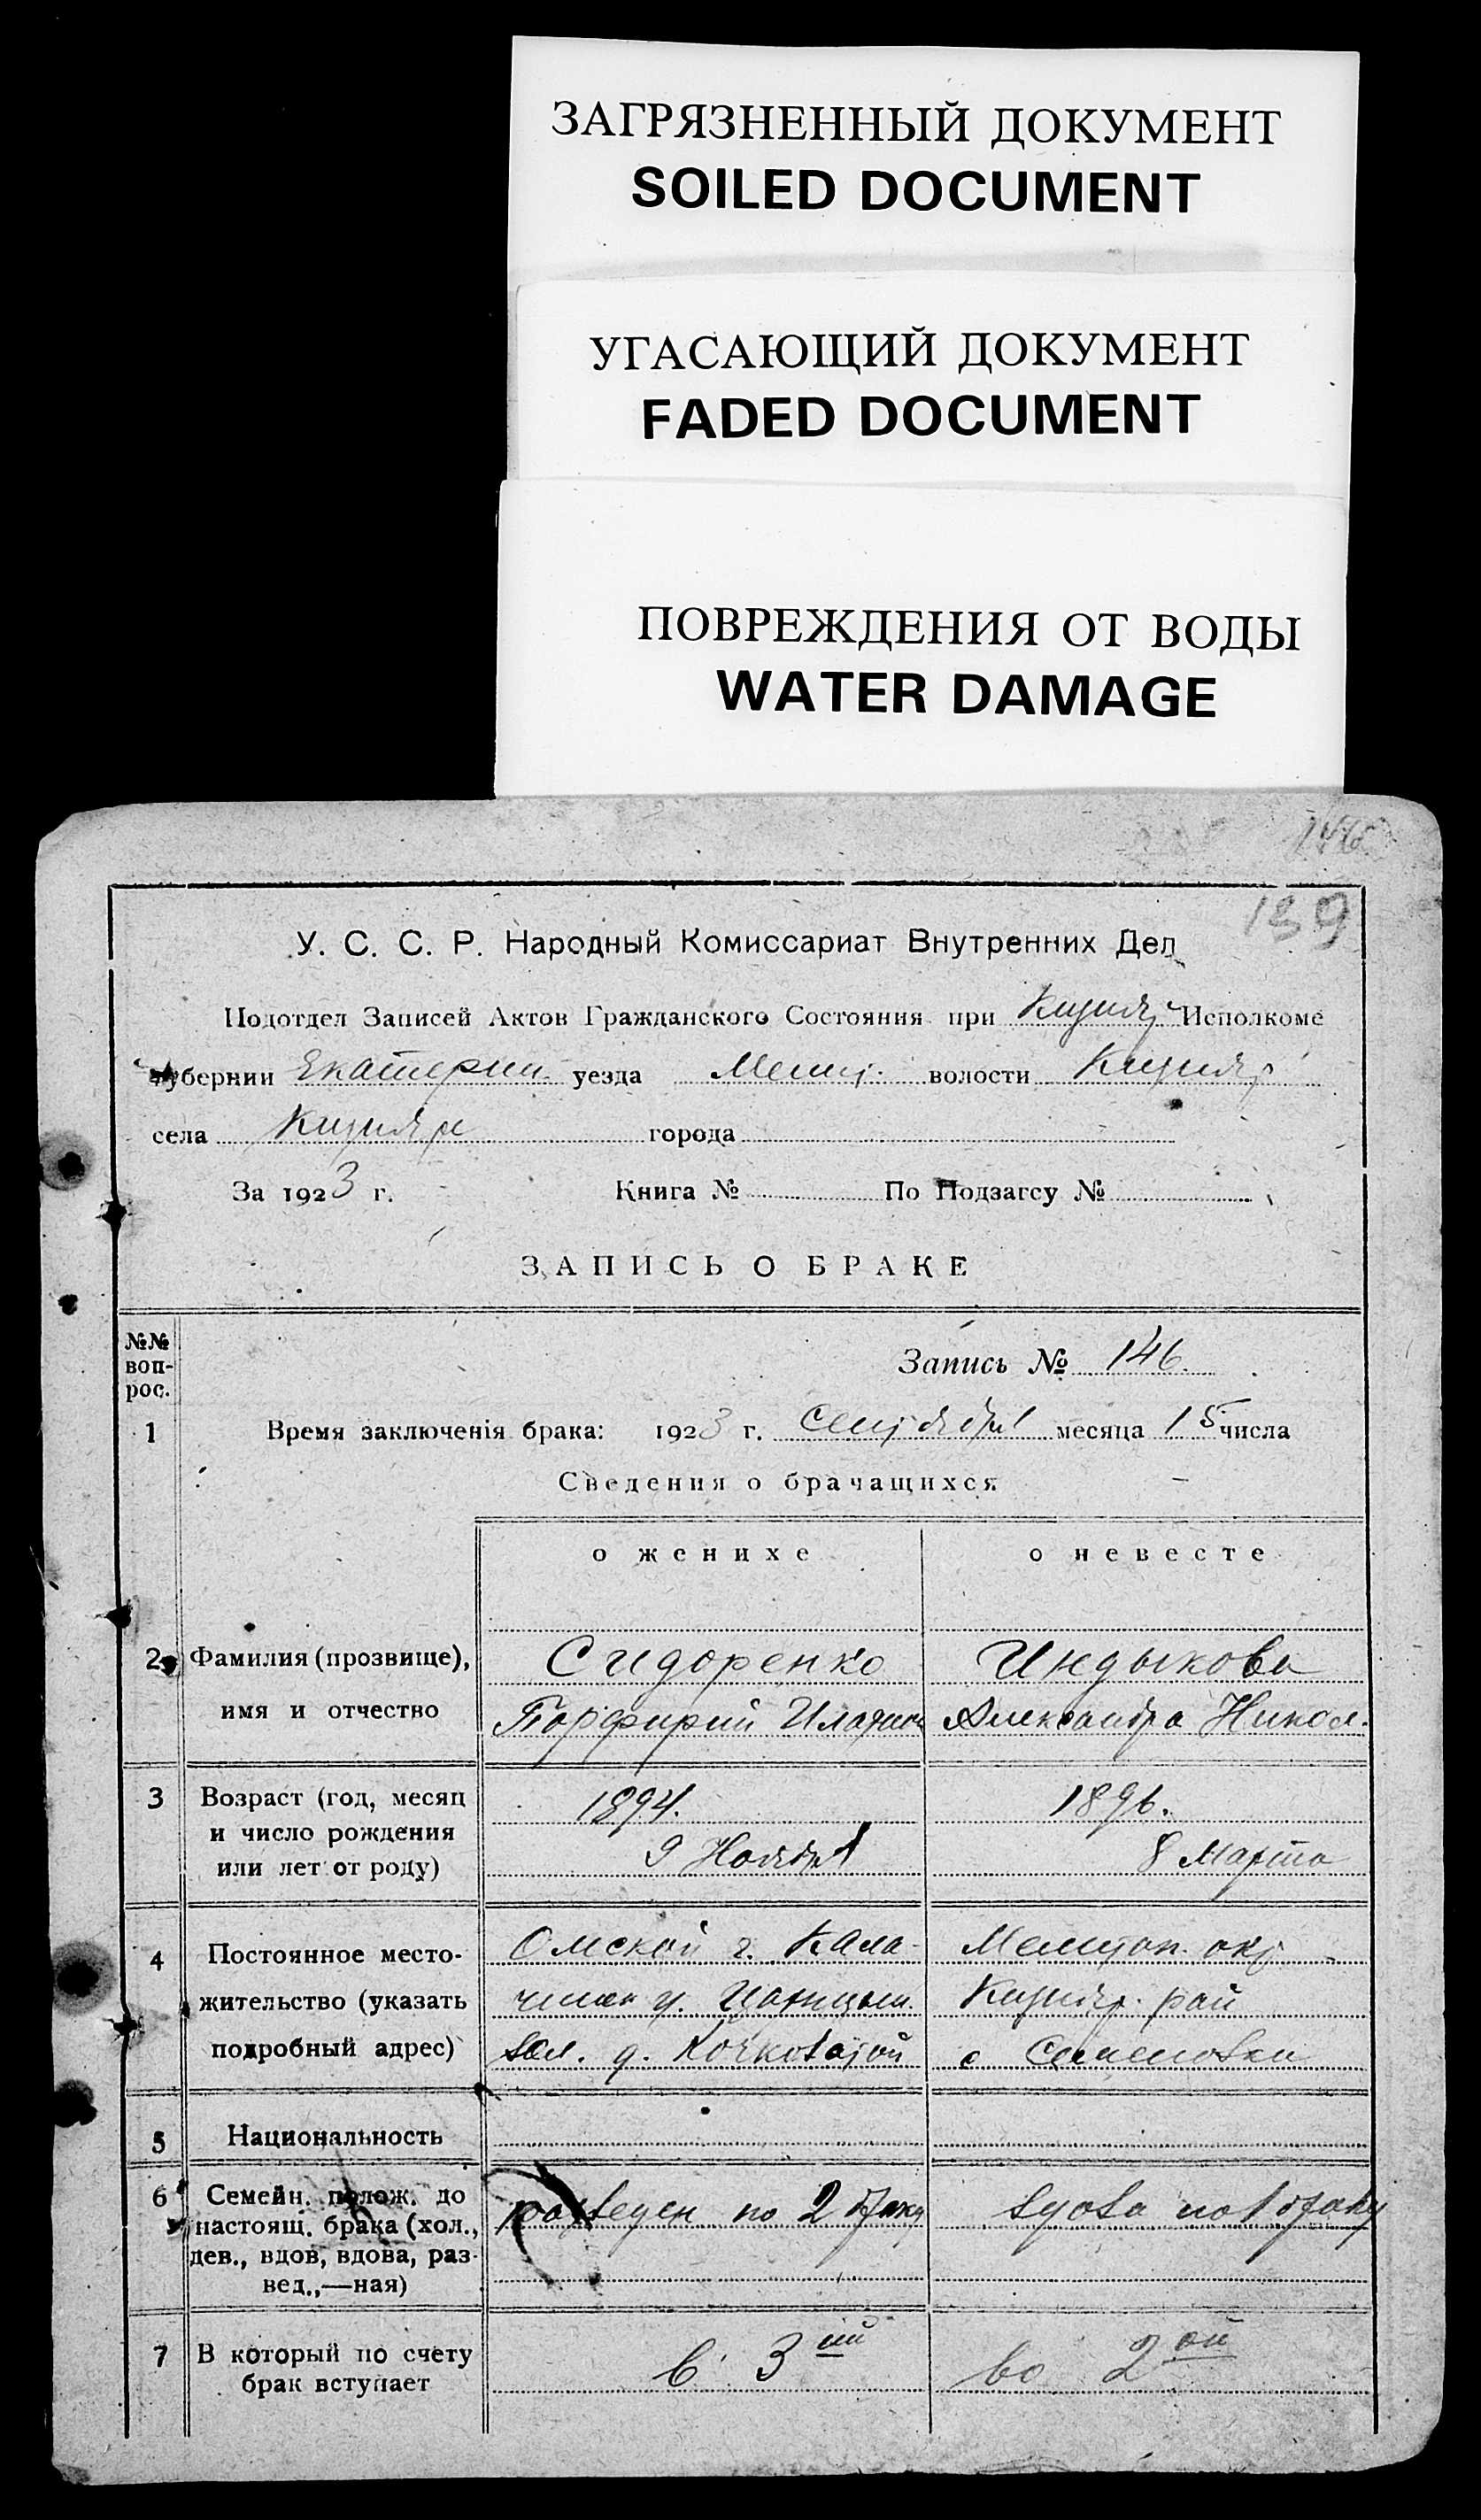 ЗАГРЯЗНЕННЫЙ ДОКУМЕНТ
SOILED DOCUMENT
УГАСАЮЩИЙ ДОКУМЕНТ
FADED DOCUMENT
ПОВРЕЖДЕНИЯ ОТ ВОДЫ
WATER DAMAGE
146
139
У. С. С. Р. Народный Комиссариат Внутренних Дел
Подотдел Записей Актов Гражданского Состояния при Кизияр Исполкоме
губернии Екатерин. уезда Мелит. волости Кизияр
села Кизияри города
За 1923 г. Книга № По Подзагсу №
ЗАПИСЬ О БРАКЕ
№№ воп-рос.
Запись № 146.
1 Время заключенія брака: 1923 г. Сентября месяца 15 числа
Сведения о брачащихся
о женихе о невесте
2 Фамилия (прозвище), Сидоренко Индыкова
имя и отчество Порфирий Александра Никол.
3 Возраст (год, месяц 1894. 1896.
и число рождения
или лет от роду) 9 Ноября 8 Марта
4 Постоянное место- Омской г. Кала- Мелитоп. окр.
жительство (указать у. Кизияр. рай
подробный адрес) вол. д. с Семеновки
5 Национальность
6 Семейн. полож. до
настоящ. брака (хол., разведен по 2 браку вдова по 1 браку
дев., вдов, вдова, раз-
вед.,—ная)
7 В который по счету в 3ий во 2ой
брак вступает